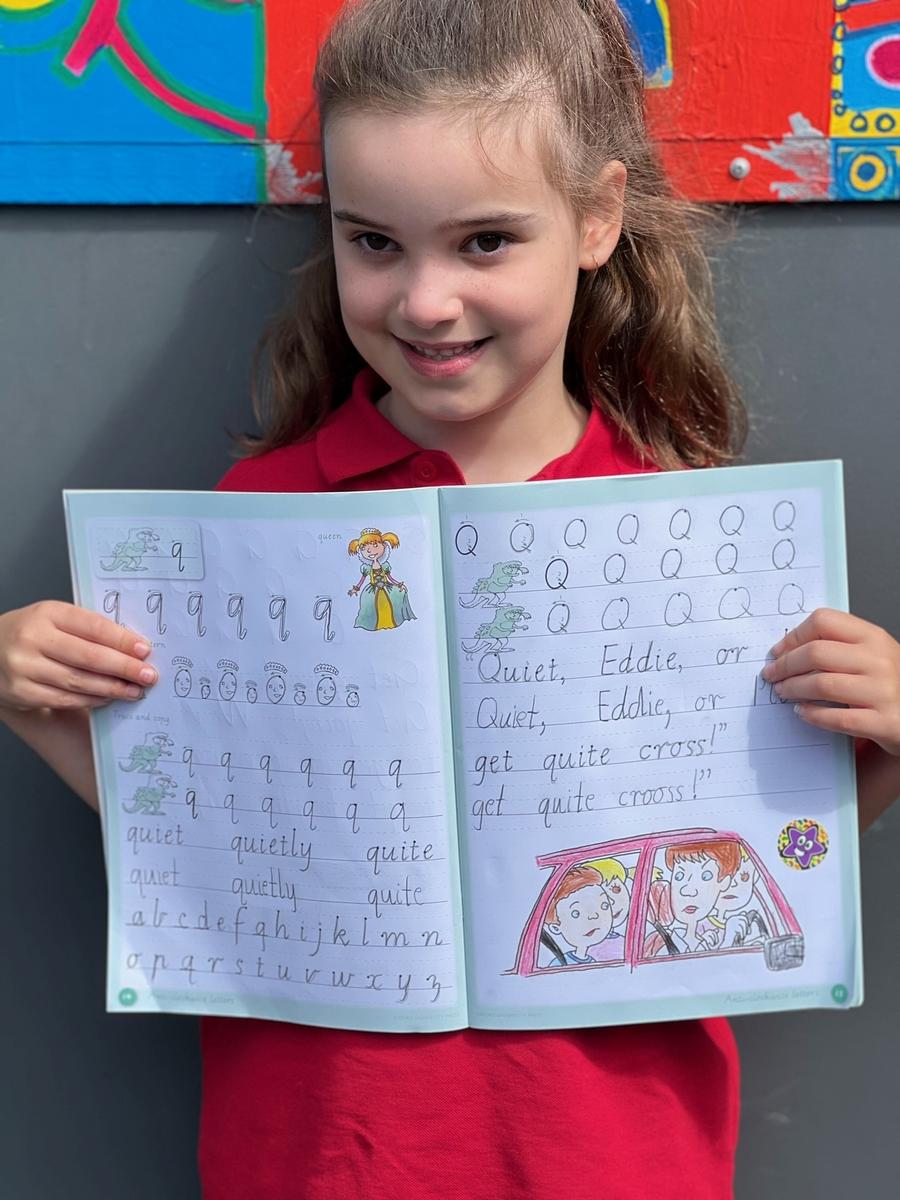 q
queen
q q q q q q
Trace and copy
q q q q q q
q q q q q q
quiet quietly quite
quiet quietly quite
a b c d e f g h i j k l m n
o p q r s t u v w x y z
Anticlockwise letters
OXFORD UNIVERSITY PRESS
Q Q Q Q Q Q Q
Q Q Q Q Q
Q Q Q Q Q
Quiet, Eddie, or
Quiet, Eddie, or
get quite cross!”
get quite crooss!”
OXFORD UNIVERSITY PRESS
Anticlockwise letters